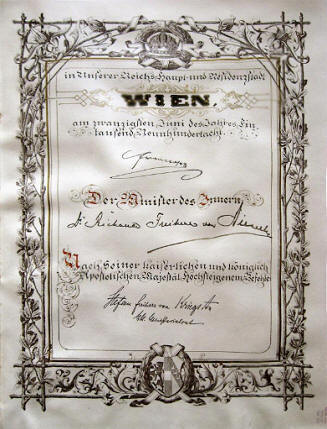 in Unserer Reichs-Haupt-und Residenzstadt
WIEN,
am zwanzigsten Juni des Jahres Ein-
tausend Neunhundertacht.
Der Minister des Innern
Dr Richard Freiherr von
Nach Seiner kaiserlichen und königlich
Apostolischen Majestät Höchsteigenem Befehle
Stefan Freiherr von